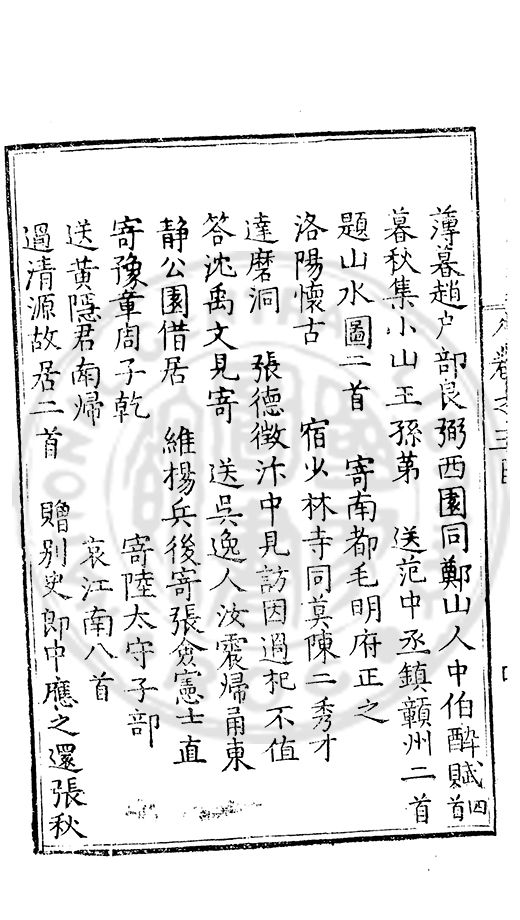 薄暮趙户部良弼西園同鄭山人中伯醉賦四首
暮秋集小山王孫第　送范中丞鎮贛州二首
題山水圖二首　寄南都毛明府正之
洛陽懷古　宿少林寺同莫陳二秀才
達磨洞　張德徵汴中見訪因過杞不值
答沈禹文見寄　送吳逸人汝震歸甬東
靜公園借居　維楊兵後寄張僉憲士直
寄豫章周子乾　寄陸太守子部
送黃隱君南歸　哀江南八首
過清源故居二首　贈別史郎中應之還張秋